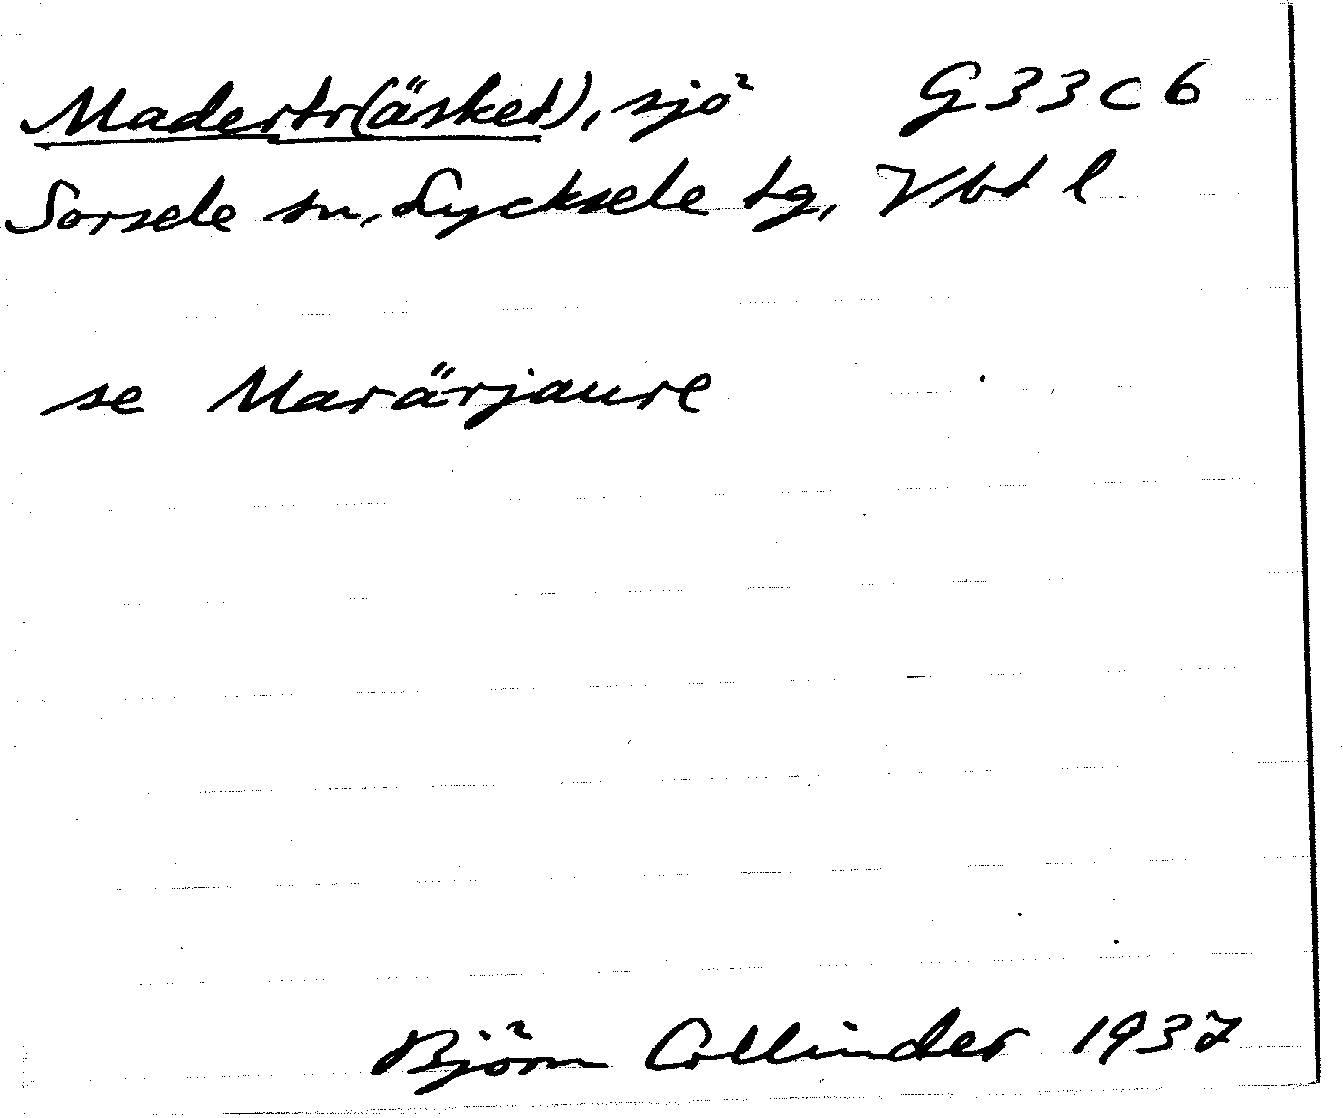 Madertr(äsket), sjö G33c6
Sorsele sn, Lycksele tg, Vbt l
se Marärjaure
Björn Collinder 1937